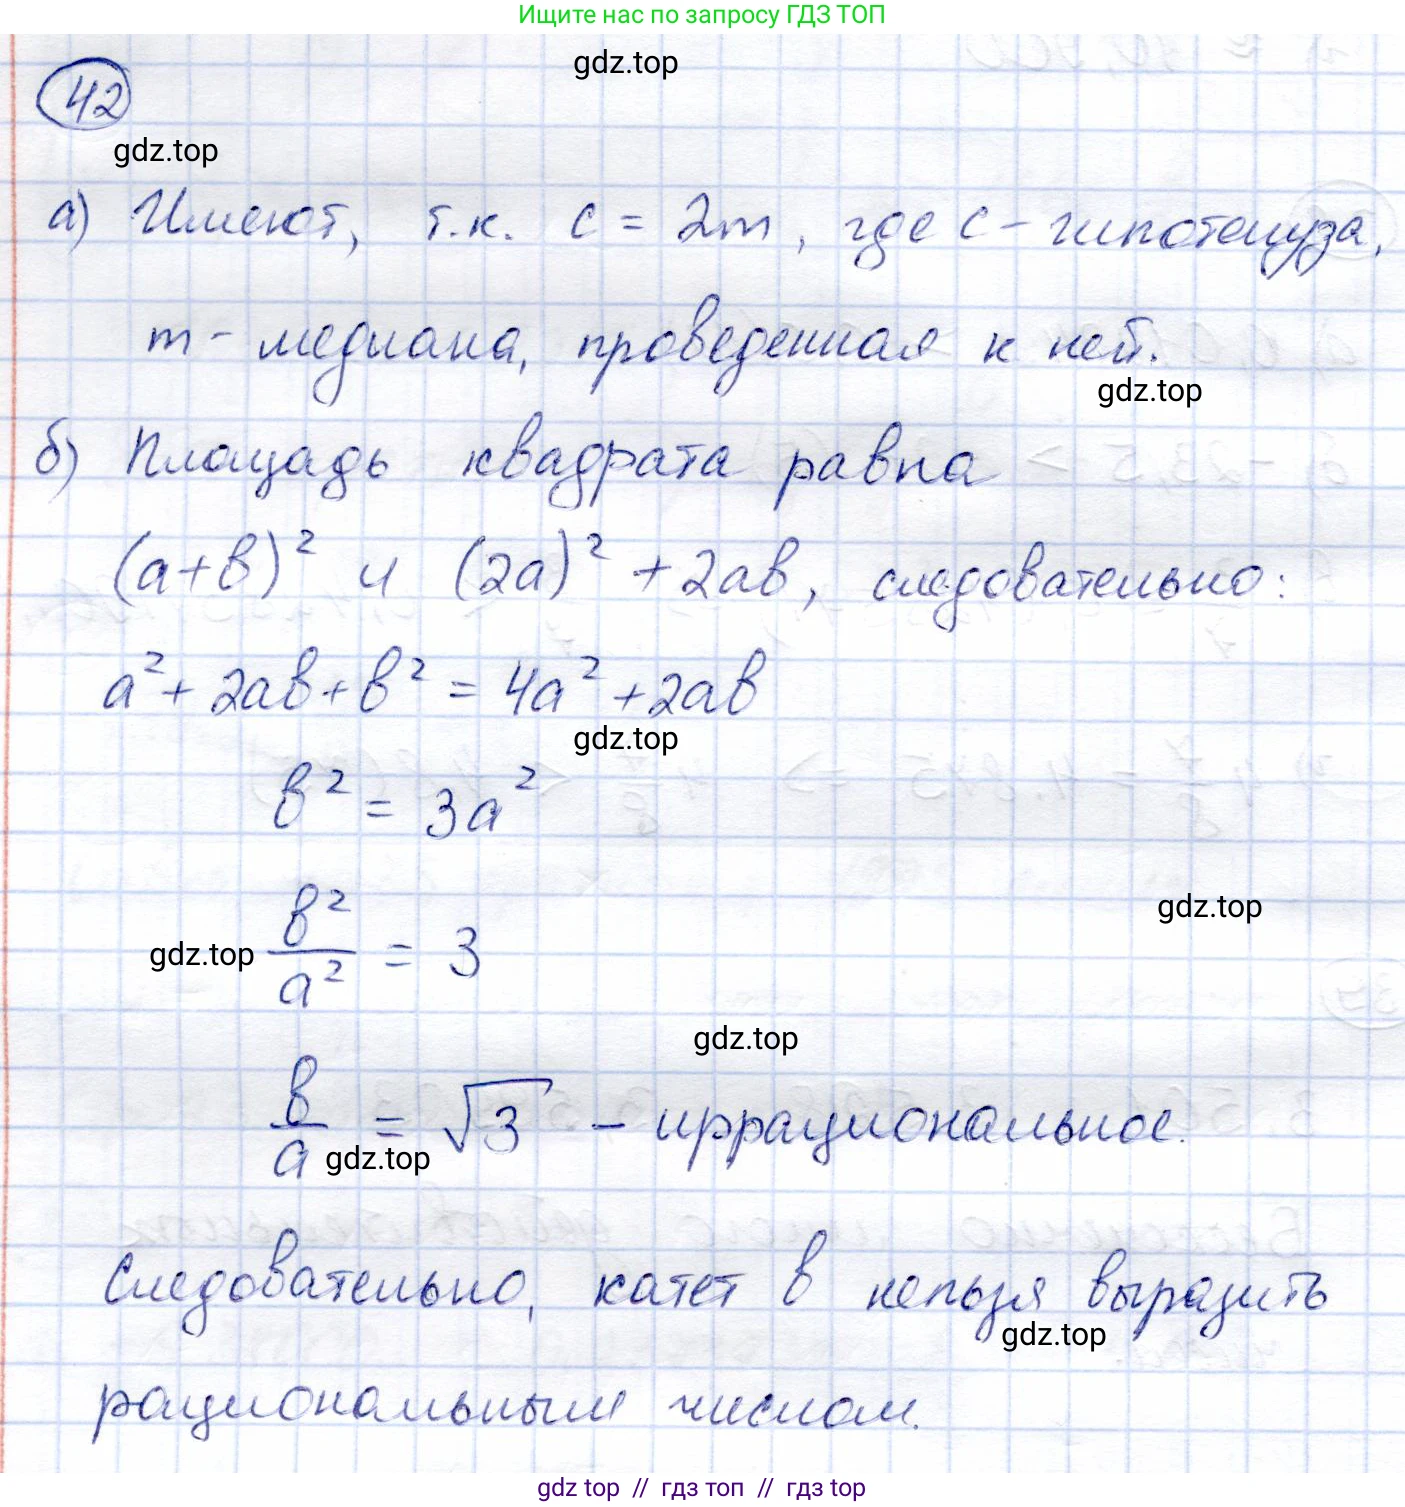 Ищите нас по запросу ГДЗ ТОП
gdz.top
42
gdz.top
а) Имеют, т.к. c = 2m, где c - гипотенуза,
m - медиана, проведенная к ней.
gdz.top
б) Площадь квадрата равна
(a+b)² и (2a)² + 2ab, следовательно:
a² + 2ab + b² = 4a² + 2ab
gdz.top
b² = 3a²
gdz.top
gdz.top b²/a² = 3
gdz.top
b/a = √3 - иррациональное.
gdz.top
Следовательно, катет b нельзя выразить
gdz.top
рациональным числом.
gdz top // гдз топ // гдз top